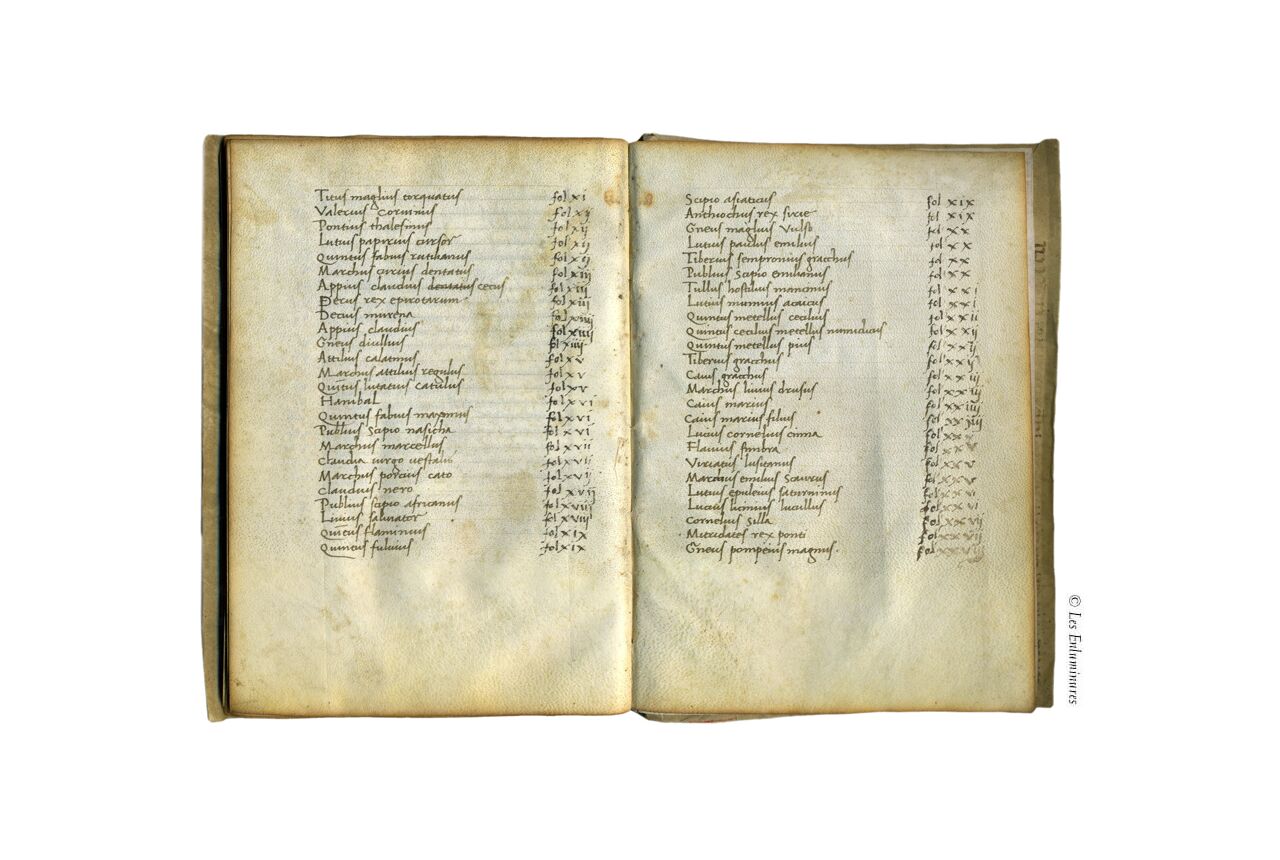 Titus maglius torquatus fol xi
Valerius Corninus fol xij
Pontius thalesinus fol xij
Lutius papirius cursor fol xij
Quintus fabius rutilianus fol xij
Marchus curius dentatus fol xiij
Appius claudius dentatus cecus fol xiij
Pecus rex epirotarum fol xiij
Decus murena fol xiiij
Appius claudius fol xiiij
Gneus diullius fol xiiij
Attilius calatinus fol xv
Marchus attilius regulus fol xv
Quintus lutatius catulus fol xv
Hanibal fol xvi
Quintus fabius maximus fol xvi
Publius Scipio nasicha fol xvi
Marchus marcellus fol xvii
Claudia virgo vestalis fol xvij
Marchus porcius cato fol xvij
Claudius nero fol xvij
Publius scipio africanus fol xviij
Livius salinator fol xviij
Quintus flaminius fol xix
Quintus fulvius fol xix
Scipio asiaticus fol xix
Anthiochus rex sirie fol xix
Gneus maglius Vulso fol xx
Lutius paulus emilius fol xx
Tiberius sempronius gracchus fol xx
Publius Scipio emilianus fol xx
Tullus hostilius mancinus fol xxi
Lutius mumius acaicus fol xxi
Quintus metellus cecilius fol xxij
Quintus cecilius metellus numidicus fol xxij
Quintus metellus pius fol xxij
Tiberius gracchus fol xxij
Caius gracchus fol xxiij
Marchus livius drusus fol xxiij
Caius marius fol xxiiij
Caius marius filius fol xxiiij
Lucius cornelius cinna fol xxv
Flavius fimbra fol xxv
Viriatus lusitanus fol xxv
Marchus emilius Scaurus fol xxv
Lutius epuleius saturninus fol xxvi
Lucius licinius lucullus fol xxvi
Cornelius Silla fol xxvij
Mitridates rex ponti fol xxvij
Gneus pompeius magnus fol xxvij
© Les Enluminures